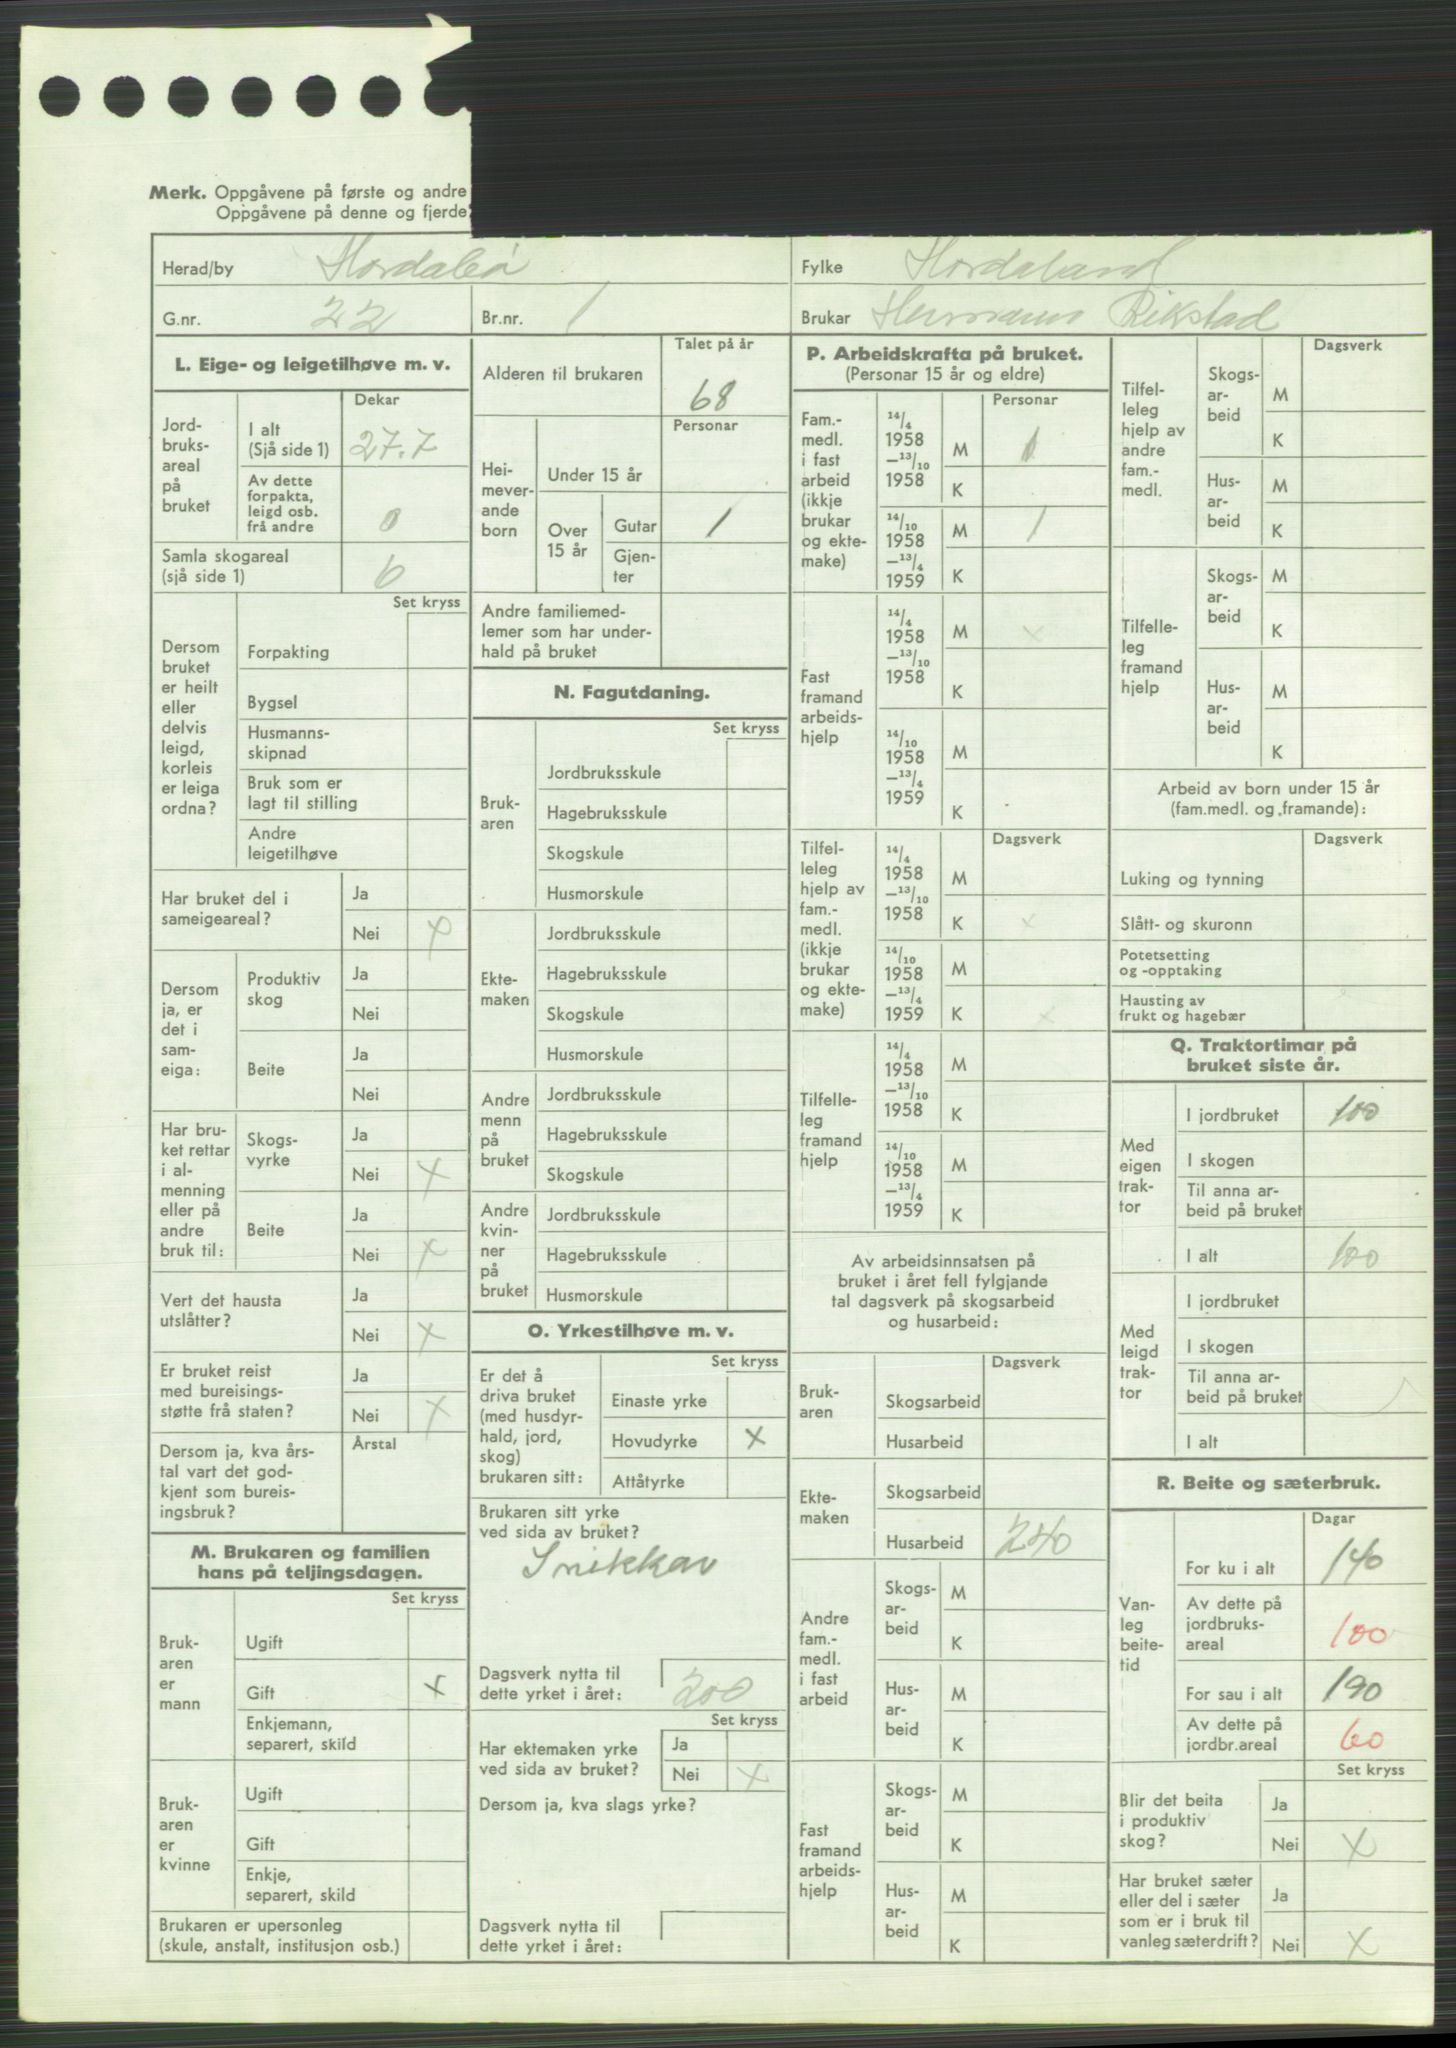 Merk. Oppgåvene på første og andre
Oppgåvene på denne og fjerde
Herad/by
Fylke Hordaland
G.nr. 22 Br.nr. 1
Brukar Rikstad
L. Eige- og leigetilhøve m. v.
Dekar
Jord-
bruks-
areal
på
bruket
I alt
(Sjå side 1) 27.7
Av dette
forpakta,
leigd osb.
frå andre 0
Samla skogareal
(sjå side 1) 6
Set kryss
Dersom
bruket
er heilt
eller
delvis
leigd,
korleis
er leiga
ordna?
Forpakting
Bygsel
Husmanns-
skipnad
Bruk som er
lagt til stilling
Andre
leigetilhøve
Har bruket del i
sameigeareal?
Ja
Nei x
Dersom
ja, er
det i
sam-
eiga:
Produktiv
skog
Ja
Nei
Beite
Ja
Nei
Har bru-
ket rettar
i al-
menning
eller på
andre
bruk til:
Skogs-
vyrke
Ja
Nei x
Beite
Ja
Nei x
Vert det hausta
utslåtter?
Ja
Nei x
Er bruket reist
med bureisings-
støtte frå staten?
Ja
Nei x
Dersom ja, kva års-
tal vart det god-
kjent som bureis-
ingsbruk?
Årstal
M. Brukaren og familien
hans på teljingsdagen.
Set kryss
Bruk-
aren
er
mann
Ugift
Gift x
Enkjemann,
separert, skild
Bruk-
aren
er
kvinne
Ugift
Gift
Enkje,
separert, skild
Brukaren er upersonleg
(skule, anstalt, institusjon osb.)
Talet på år
Alderen til brukaren 68
Personar
Hei-
mever-
ande
born
Under 15 år
Over
15 år
Gutar 1
Gjen-
ter
Andre familiemed-
lemer som har under-
hald på bruket
N. Fagutdaning.
Set kryss
Bruk-
aren
Jordbruksskule
Hagebruksskule
Skogskule
Husmorskule
Ekte-
maken
Jordbruksskule
Hagebruksskule
Skogskule
Husmorskule
Andre
menn
på
bruket
Jordbruksskule
Hagebruksskule
Skogskule
Andre
kvin-
ner
på
bruket
Jordbruksskule
Hagebruksskule
Husmorskule
O. Yrkestilhøve m. v.
Set kryss
Er det å
driva bruket
(med husdyr-
hald, jord,
skog)
brukaren sitt:
Einaste yrke
Hovudyrke x
Attåtyrke
Brukaren sitt yrke
ved sida av bruket?
Snikkar
Dagsverk nytta til
dette yrket i året: 200
Set kryss
Har ektemaken yrke
ved sida av bruket?
Ja
Nei x
Dersom ja, kva slags yrke?
Dagsverk nytta til
dette yrket i året:
P. Arbeidskrafta på bruket.
(Personar 15 år og eldre)
Personar
Fam.-
medl.
i fast
arbeid
(ikkje
brukar
og ekte-
make)
14/4
1958
–13/10
1958
M 1
K
14/10
1958
–13/4
1959
M 1
K
Fast
framand
arbeids-
hjelp
14/4
1958
–13/10
1958
M x
K
14/10
1958
–13/4
1959
M
K
Dagsverk
Tilfel-
leleg
hjelp av
fam.-
medl.
(ikkje
brukar
og ekte-
make)
14/4
1958
–13/10
1958
M
K x
14/10
1958
–13/4
1959
M
K x
Tilfelle-
leg
framand
hjelp
14/4
1958
–13/10
1958
M
K
14/10
1958
–13/4
1959
M
K
Av arbeidsinnsatsen på
bruket i året fell fylgjande
tal dagsverk på skogsarbeid
og husarbeid:
Dagsverk
Bruk-
aren
Skogsarbeid
Husarbeid
Ekte-
maken
Skogsarbeid
Husarbeid 240
Andre
fam.-
medl.
i fast
arbeid
Skogs-
ar-
beid
M
K
Hus-
ar-
beid
M
K
Fast
framand
arbeids-
hjelp
Skogs-
ar-
beid
M
K
Hus-
ar-
beid
M
K
Dagsverk
Tilfel-
leleg
hjelp av
andre
fam.-
medl.
Skogs-
ar-
beid
M
K
Hus-
ar-
beid
M
K
Tilfelle-
leg
framand
hjelp
Skogs-
ar-
beid
M
K
Hus-
ar-
beid
M
K
Arbeid av born under 15 år
(fam.medl. og framande):
Dagsverk
Luking og tynning
Slått- og skuronn
Potetsetting
og -opptaking
Hausting av
frukt og hagebær
Q. Traktortimar på
bruket siste år.
Med
eigen
trak-
tor
I jordbruket 100
I skogen
Til anna ar-
beid på bruket
I alt 100
Med
leigd
trak-
tor
I jordbruket
I skogen
Til anna ar-
beid på bruket
I alt
R. Beite og sæterbruk.
Dagar
Van-
leg
beite-
tid
For ku i alt 140
Av dette på
jordbruks-
areal 100
For sau i alt 190
Av dette på
jordbr.areal 60
Set kryss
Blir det beita
i produktiv
skog?
Ja
Nei x
Har bruket sæter
eller del i sæter
som er i bruk til
vanleg sæterdrift?
Ja
Nei x